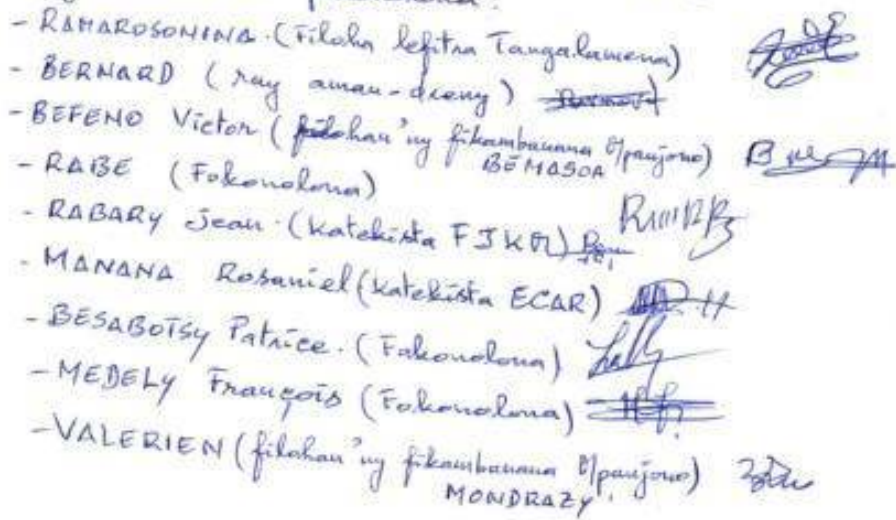 - RAMAROSONINA. (Filoha lefitra Tangalamena)
- BERNARD (ray aman-dreny)
- BEFENO Victor (filohan'ny fikambanana M/panjono)
BEMASOA
- RABE (Fokonolona)
- RABARY Jean. (Katekista FJKM)
- MANANA Rosaniel (Katekista ECAR)
- BESABOTSY Patrice. (Fokonolona)
- MEDELY François (Fokonolona)
- VALERIEN (filohan'ny fikambanana M/panjono)
MONDRAZY